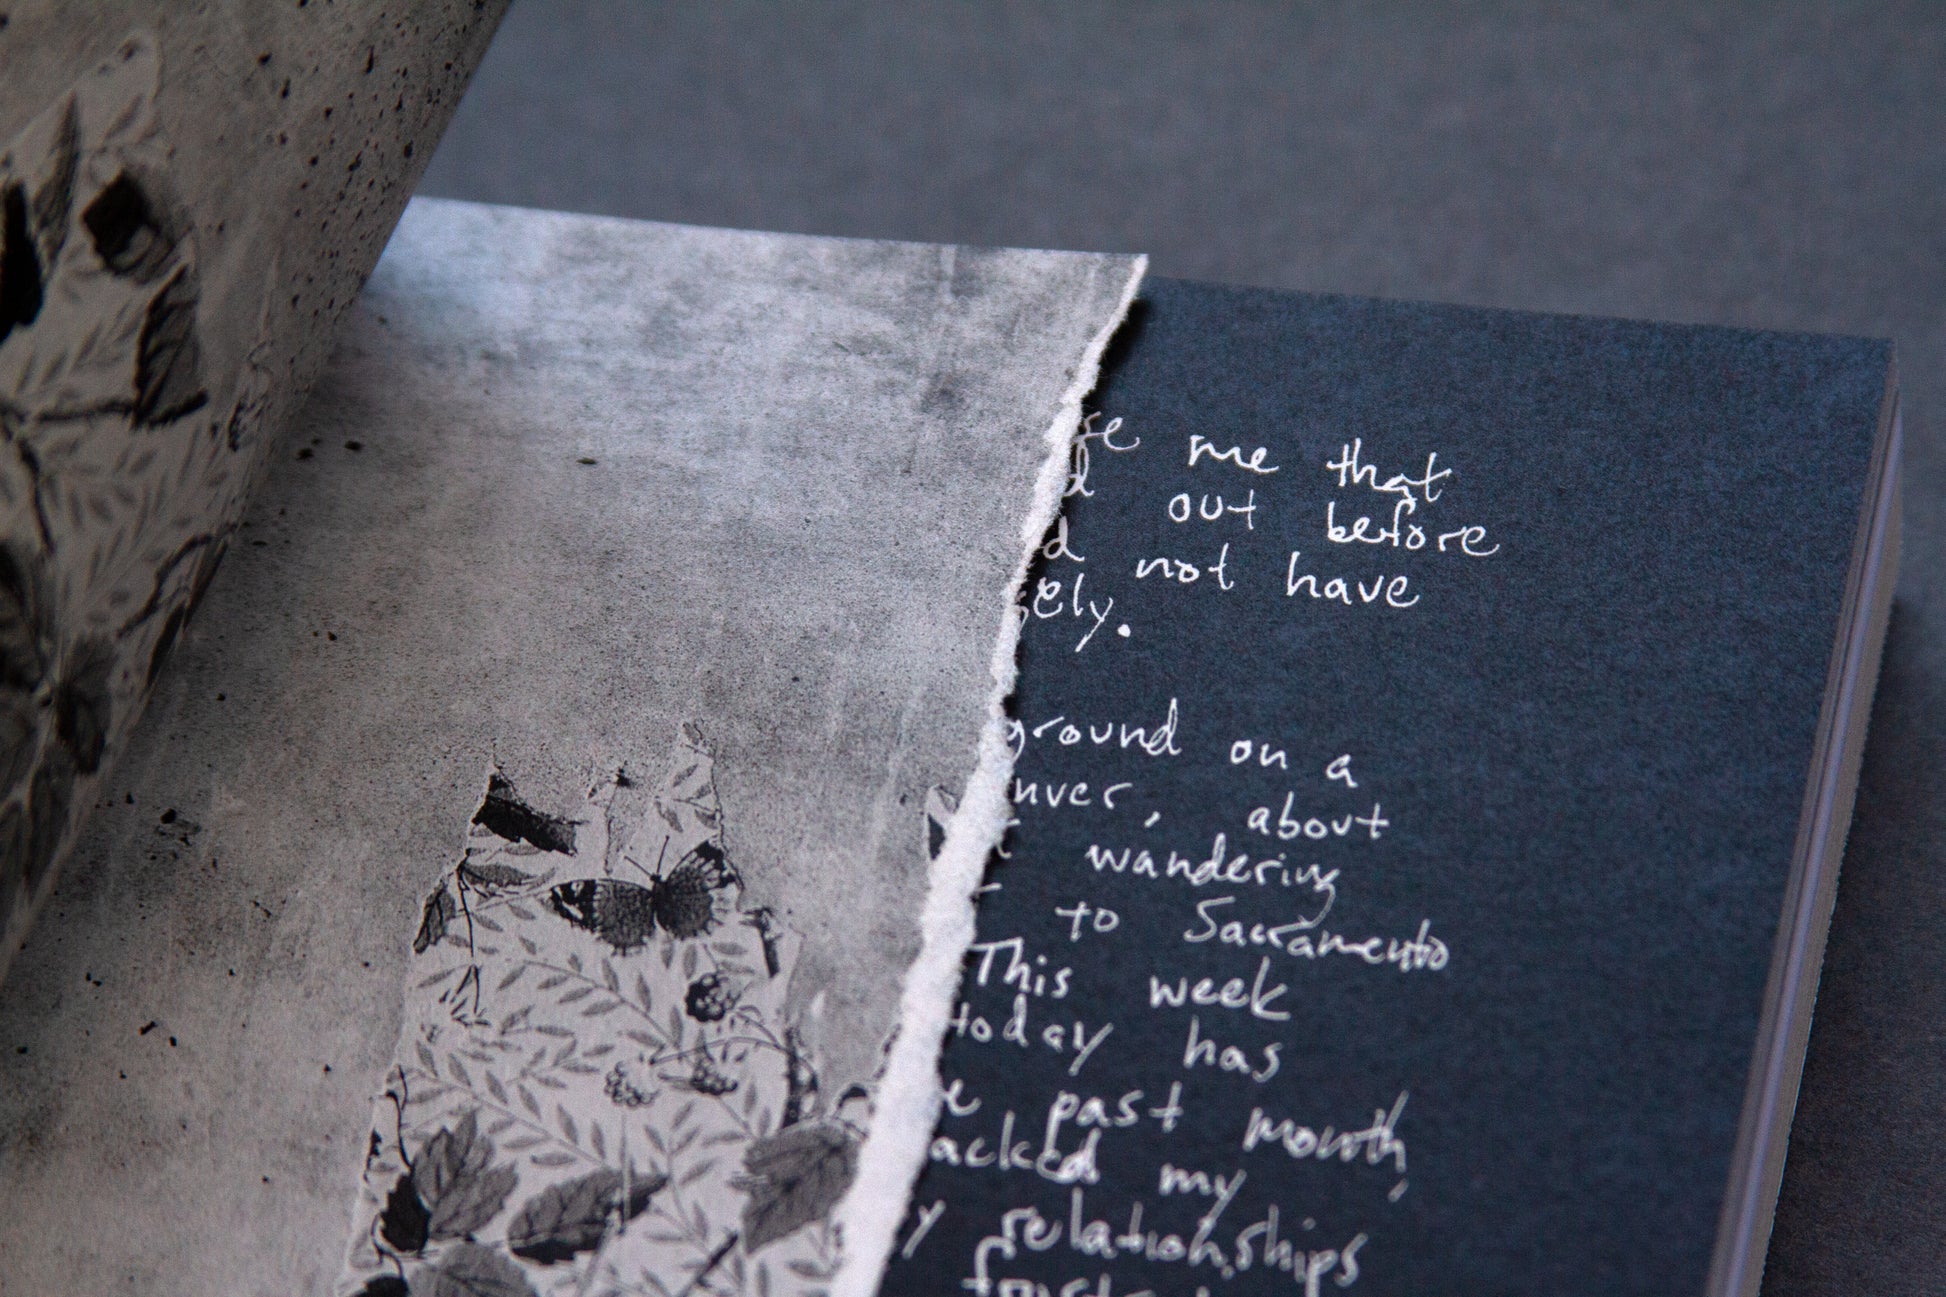 me that
out before
not have
ely.
ground on a
nver, about
wandering
to Sacramento
This week
today has
e past month,
acked my
y relationships